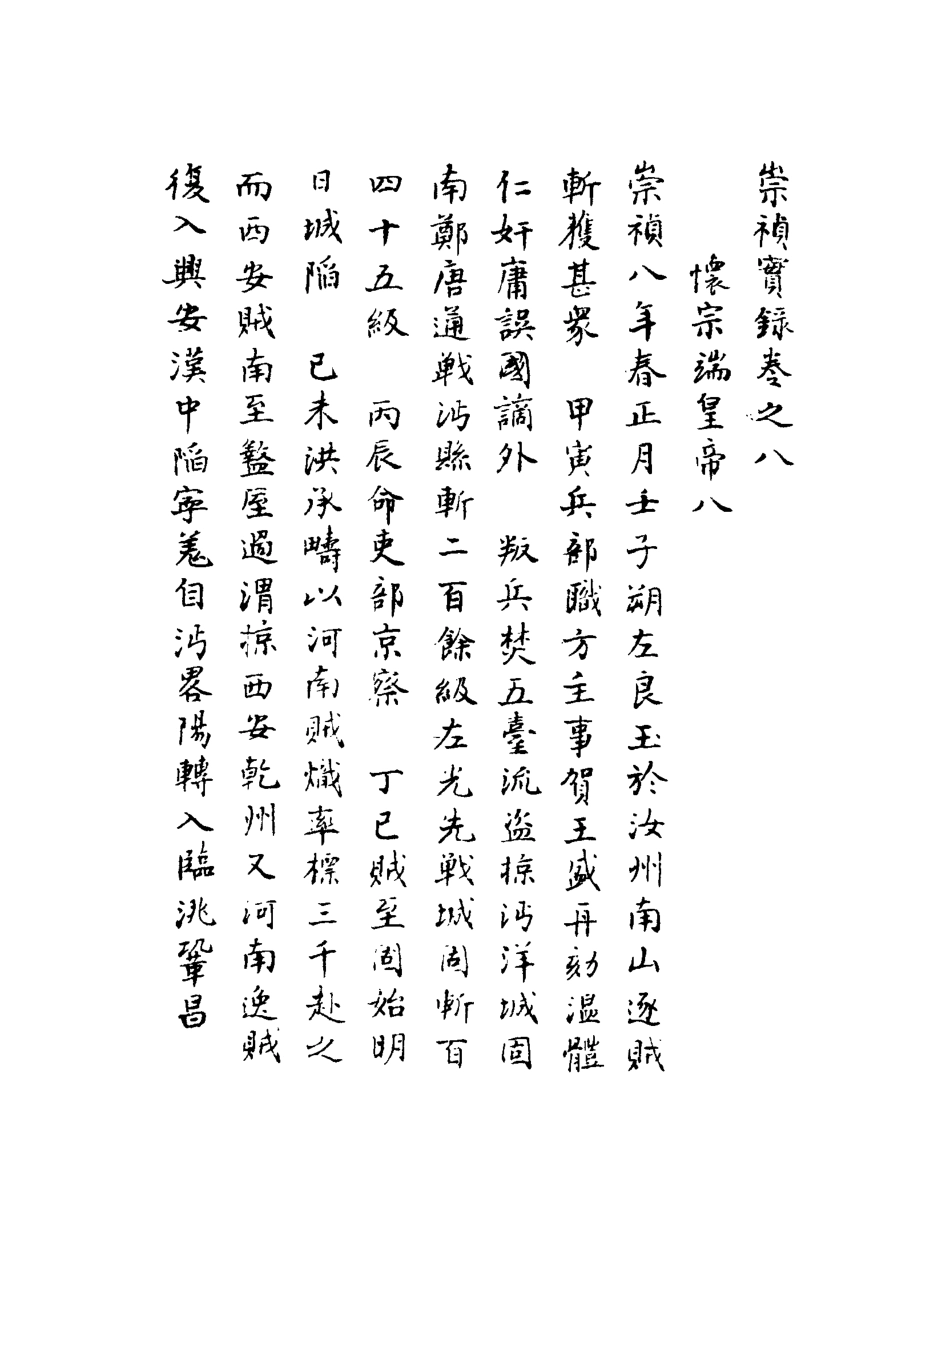 崇禎實錄卷之八
懷宗端皇帝八
崇禎八年春正月壬子朔左良玉於汝州南山逐賊
斬獲甚衆　甲寅兵部職方主事賀王盛再劾溫體
仁奸庸誤國謫外　叛兵焚五臺流盜掠沔洋城固
南鄭唐通戰沔縣斬二百餘級左光先戰城固斬百
四十五級　丙辰命吏部京察　丁巳賊至固始明
日城陷　已未洪承疇以河南賊熾率標三千赴之
而西安賊南至盩厔過渭掠西安乾州又河南逸賊
復入興安漢中陷寧羗自沔畧陽轉入臨洮鞏昌